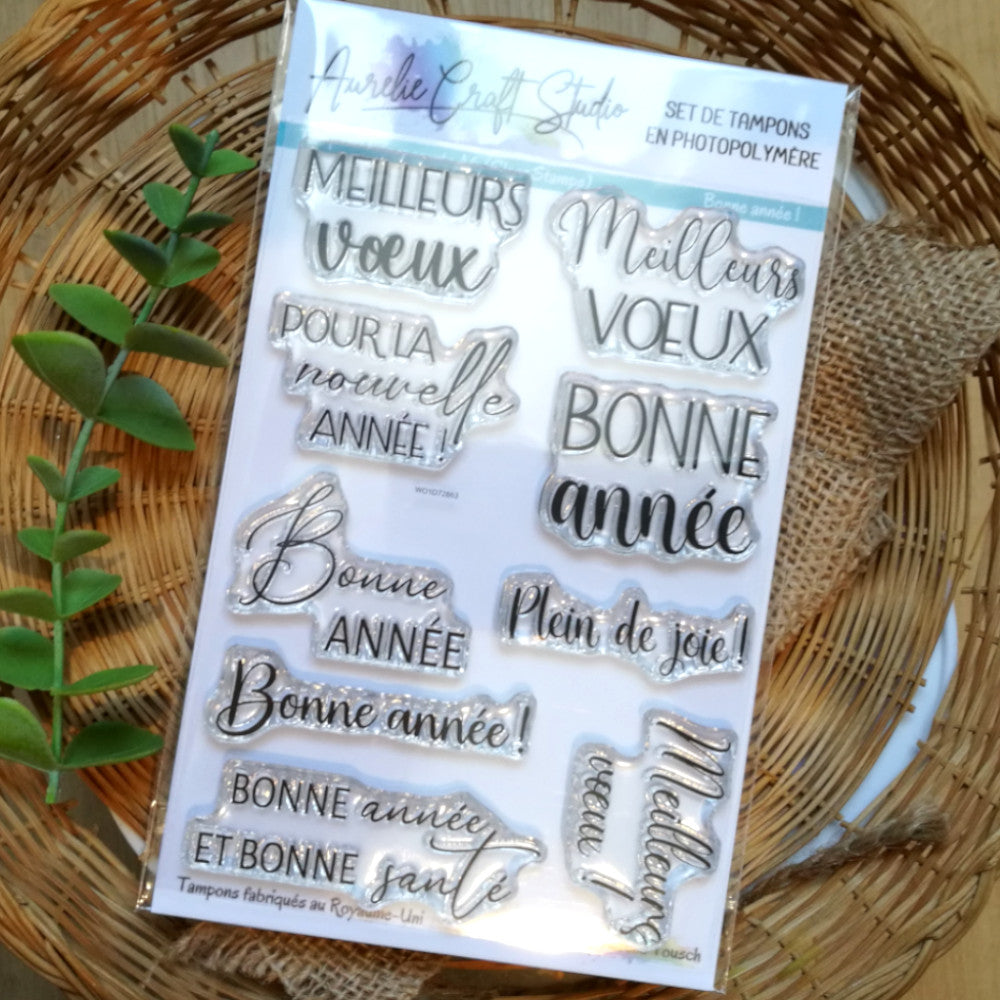 Aurelie Craft Studio
SET DE TAMPONS
EN PHOTOPOLYMÈRE
Stamps)
Bonne année !
MEILLEURS
vœux
Meilleurs
VŒUX
POUR LA
nouvelle
ANNÉE !
BONNE
année
WOYD72863
Bonne
ANNÉE
Plein de joie !
Bonne année !
Meilleurs
vœux !
BONNE année
ET BONNE santé
Tampons fabriqués au Royaume-Uni